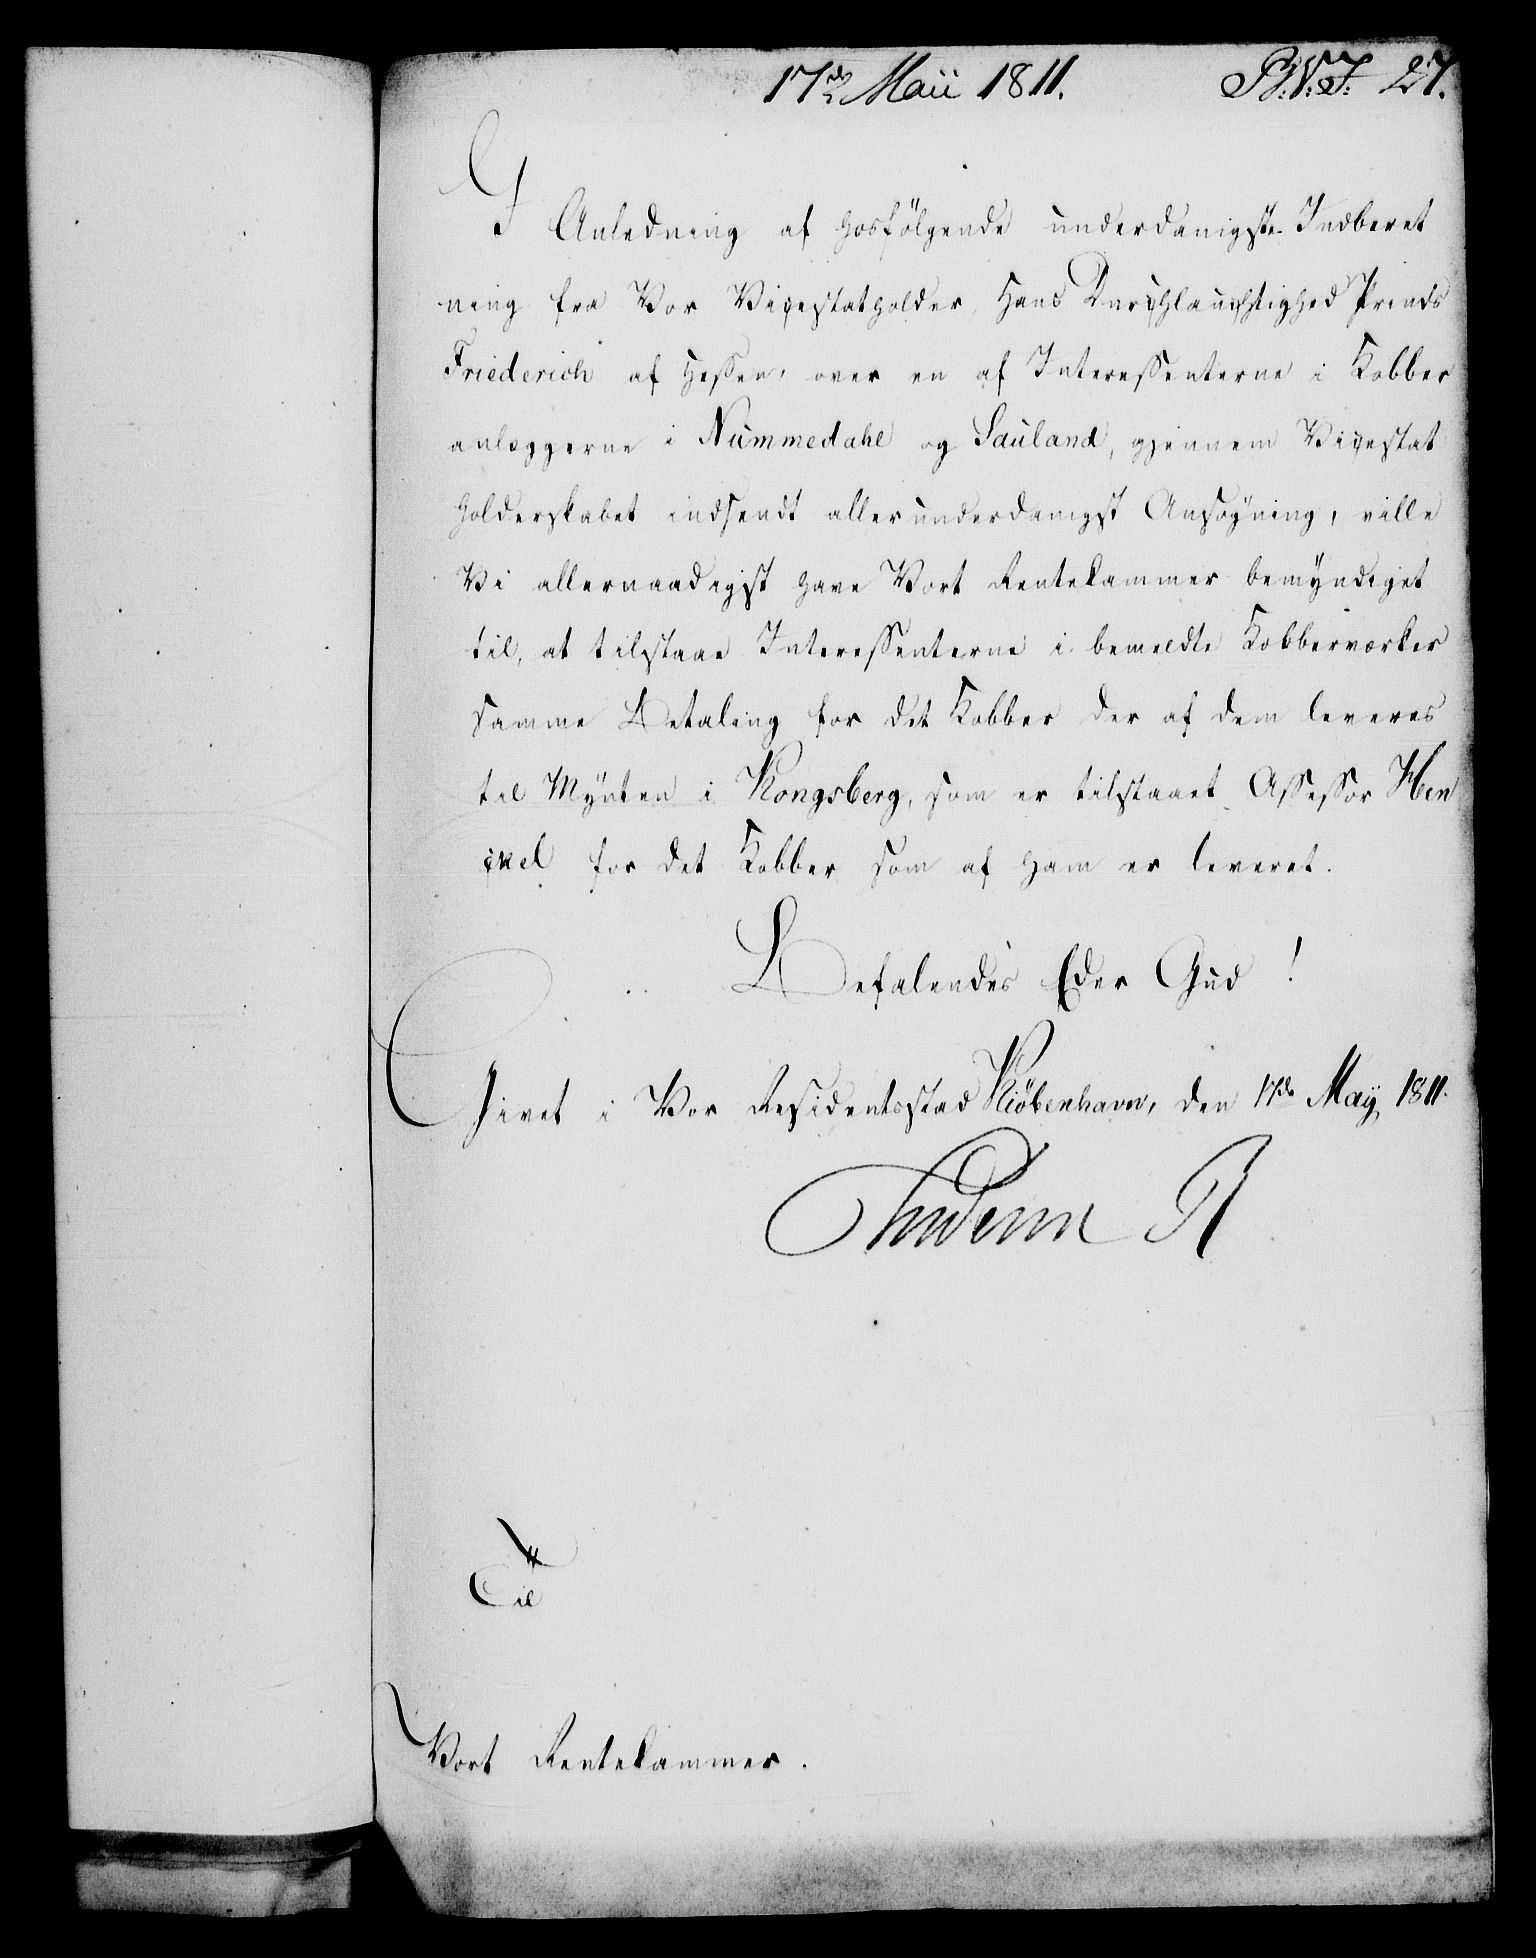 17de Maii 1811. B:V:T: 27.
I Anledning af hosfölgende underdanigste Indberet
ning fra Vor Viçestatholder, Hans Durchlauchtighed Prinds
Friederich af Hessen, over en af Interessenterne i Kobber
anlæggerne i Nummedahl og Sauland, gjennem Viçestat
holderskabet indsendt allerunderdanigst Ansøgning, ville
Vi allernaadigst have Vort Rentekammer bemÿndiget
til, at tilstaae Interessenterne i bemeldte Kobberværker
samme Betaling for det Kobber der af dem leveres
til Mÿnten i Kongsberg, som er tilstaaet Assessor Hen
çkel for det Kobber som af ham er leveret.
Befalendes Eder Gud!
Givet i Vor Residentsstad Kiöbenhavn, den 17de Maÿ 1811.
Friderich R
Til
Vort Rentekammer.